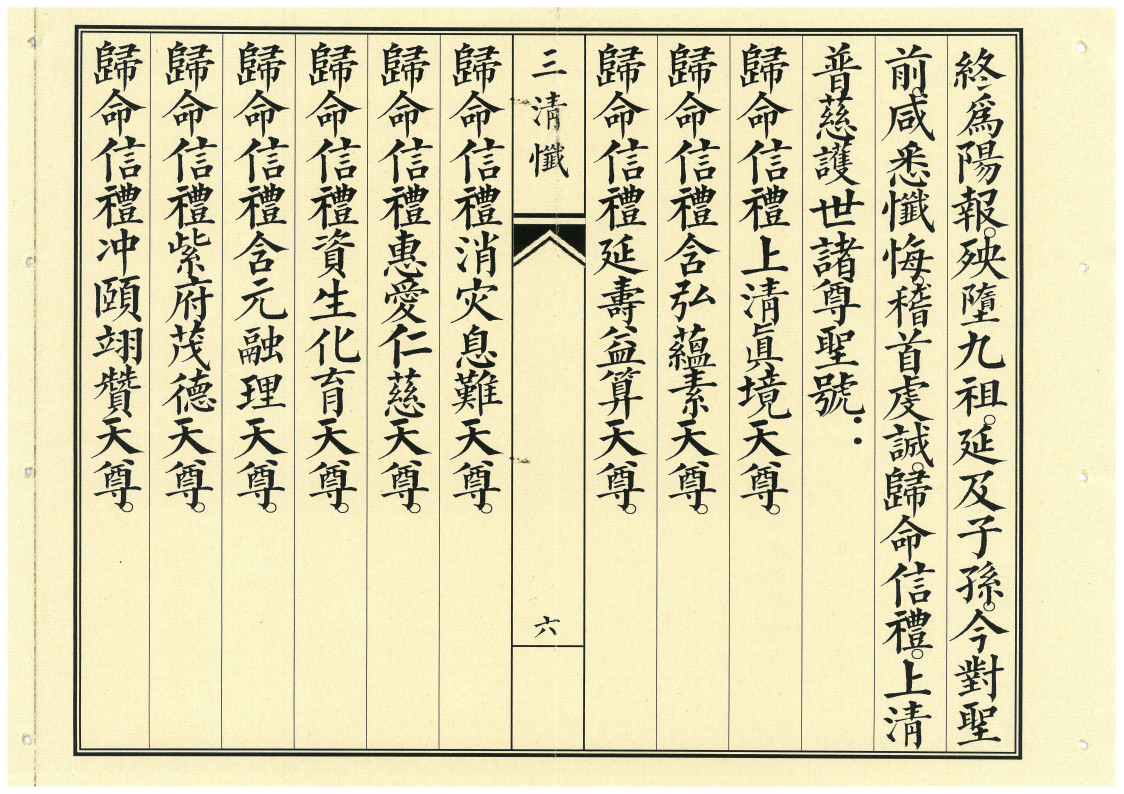 終爲陽報。殃墮九祖。延及子孫。今對聖
前。咸悉懺悔。稽首虔誠。歸命信禮。上清
普慈護世諸尊聖號：
歸命信禮上清眞境天尊。
歸命信禮含弘蘊素天尊。
歸命信禮延壽益算天尊。
三清懺
六
歸命信禮消灾息難天尊。
歸命信禮惠愛仁慈天尊。
歸命信禮資生化育天尊。
歸命信禮含元融理天尊。
歸命信禮紫府茂德天尊。
歸命信禮冲頤翊贊天尊。